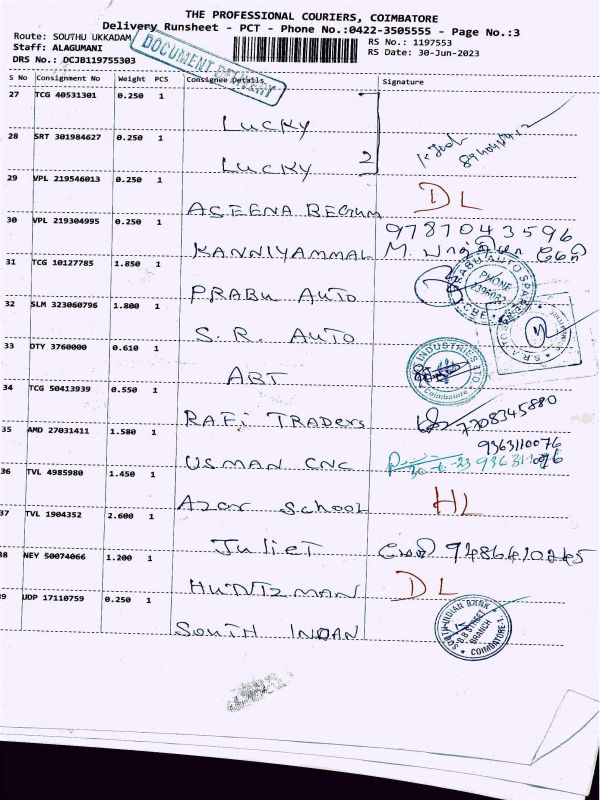 THE PROFESSIONAL COURIERS, COIMBATORE
Delivery Runsheet - PCT - Phone No.:0422-3505555 - Page No.:3
Route: SOUTHU UKKADAM
Staff: ALAGUMANI
DRS No.: DCJB119755303
RS No.: 1197553
RS Date: 30-Jun-2023
DOCUMENT DELIVERY
S No Consignment No Weight PCS Consignee Details Signature
27 TCG 40531301 0.250 1
LUCKY
28 SRT 301984627 0.250 1
LUCKY 2
29 VPL 219546013 0.250 1
ASEENA BEGUM DL
30 VPL 219304995 0.250 1 9787043596
KANNIYAMMAL
31 TCG 10127785 1.850 1
PRABU AUTO
PHONE
32 SLM 323060796 1.800 1
S.R. AUTO
33 OTY 3760000 0.610 1
ABT
INDUSTRIES LTD
Coimbatore
34 TCG 50413939 0.550 1
RAFi TRADers 7708345880
35 AMD 27031411 1.580 1 9363110076
USMAN CNC
36 TVL 4985980 1.450 1
Azar School HL
37 TVL 1904352 2.600 1
Juliet 9486410245
38 NEY 50074066 1.200 1
HUNTZMAN DL
39 UDP 17110759 0.250 1
SOUTH INDAN
SOUTH INDIAN BANK
B.B STREET
BRANCH
COIMBATORE-1